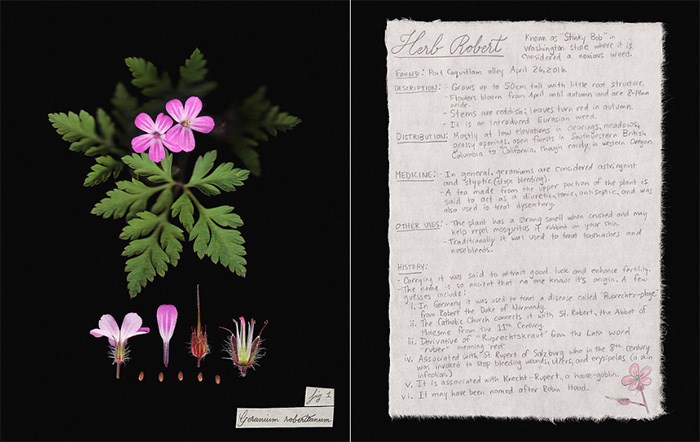 fig 1
Geranium robertianum
Herb Robert
Known as "Stinky Bob" in
Washington state where it is
considered a noxious weed.
Found: Port Coquitlam alley April 26, 2016
Description: - Grows up to 50cm tall with little root structure.
- Flowers bloom from April until autumn and are 8-14mm
wide.
- Stems are reddish; leaves turn red in autumn.
- It is an introduced Eurasian weed.
Distribution: Mostly at low elevations in clearings, meadows,
grassy openings, open forests in Southwestern British
Columbia to California, though rarely in western Oregon.
Medicine: - In general, geraniums are considered astringent
and styptic (stops bleeding).
- A tea made from the upper portion of the plant is
said to act as a diuretic, tonic, antiseptic, and was
also used to treat dysentery.
Other uses: - The plant has a strong smell when crushed and may
help repel mosquitos if rubbed on your skin.
- Traditionally it was used to treat toothaches and
nosebleeds.
History:
- Carrying it was said to attract good luck and enhance fertility.
- The name is so ancient that no one knows it's origin. A few
guesses include:
i. In Germany it was used to treat a disease called "Ruprechts-plage"
from Robert the Duke of Normandy.
ii. The Catholic Church connects it with St. Robert, the Abbot of
Molesme from the 11th Century.
iii. Derivative of "Ruprechtskraut" from the Latin word
"ruber" meaning "red"
iv. Associated with St Rupert of Salzburg who in the 8th century
was invoked to stop bleeding wounds, ulcers, and erysipelas (a skin
infection)
v. It is associated with Knecht-Rupert, a house-goblin.
vi. It may have been named after Robin Hood.